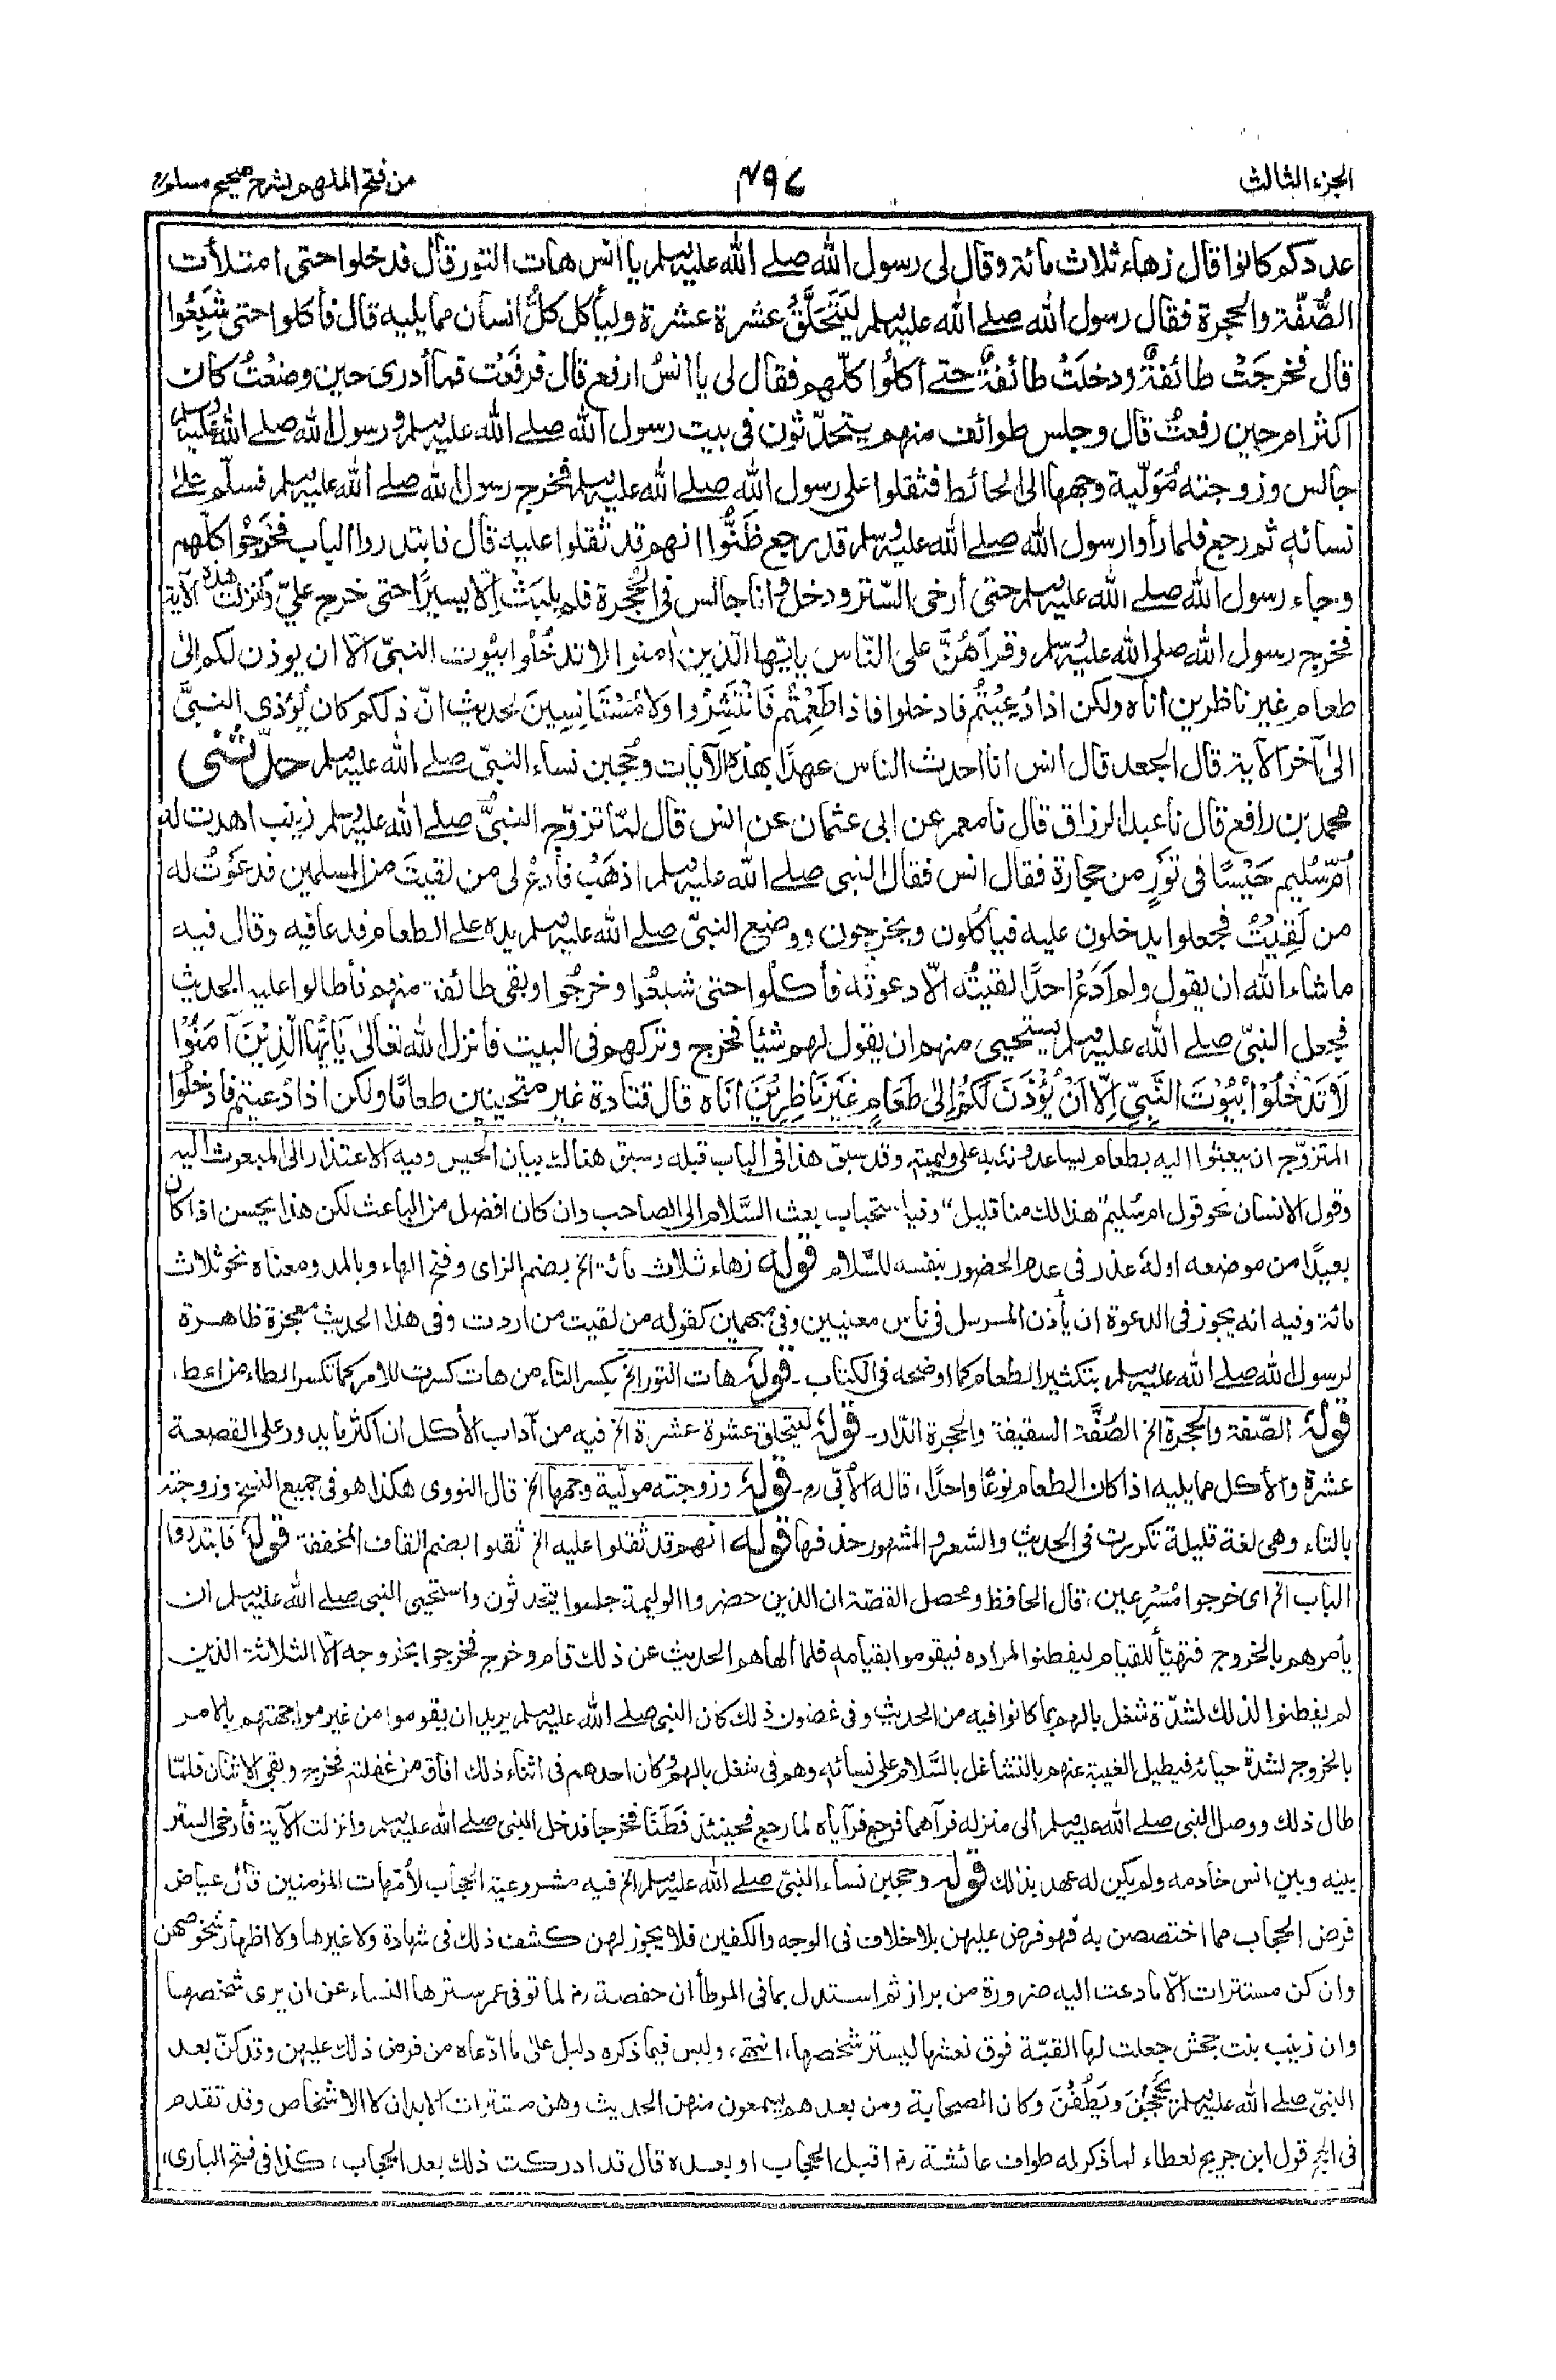 الجزء الثالث
٤٩٧
من فتح الملهم بشرح صحيح مسلم
عدد كم كانوا قال زهاء ثلاث مائة وقال لى رسول الله صلے الله عليه وسلم يا انس هات التور قال فدخلوا حتى امتلأت
الصُّفّة والحجرة فقال رسول الله صلے الله عليه وسلم لِيَتَحَلَّقْ عشرة عشرة وليأكل كلُّ انسان مما يليه قال فأكلوا حتى شَبِعُوا
قال فخرجَتْ طائفةٌ ودخلَتْ طائفةٌ حتے أكلُوا كلّهم فقال لى يا انسُ ارفع قال فرفَعْت فما أدرى حين وضعْتُ كان
اكثر ام حين رفعتُ قال وجلس طوائف منهم يتحدّثون فى بيت رسول الله صلے الله عليه وسلم ورسول الله صلے الله عليه وسلم
جالس وزوجته مُوَلّية وجهها الى الحائط فثقلوا على رسول الله صلے الله عليه وسلم فخرج رسول الله صلے الله عليه وسلم فسلّم علىٰ
نسائه ثم رجع فلما رأوا رسول الله صلے الله عليه وسلم قد رجع ظَنُّوا انهم قد ثقلوا عليه قال فابتدروا الباب فخَرَجُوا كلّهم
وجاء رسول الله صلے الله عليه وسلم حتى أرخى السّتر ودخل وانا جالس فى الحُجرة فلم يلبَثْ اِلّا يسيرًا حتى خرج علىّ وانزلت هذه الآية
فخرج رسول الله صلى الله عليه وسلم وقرأهُنَّ على النّاس يايّها الّذين اٰمنوا لا تدخُلُوا بيُوت النبىّ الّا ان يوذن لكم الىٰ
طعام غير ناظرين اناه ولكن اذا دُعِيْتُم فادخلوا فاذا طَعِمْتُم فَانْتَشِرُوا ولا مُسْتَانِسِينَ لحديث انّ ذلكم كان يُؤذى النبىَّ
الىٰ آخر الآية قال الجعد قال انس انا احدث الناس عهدًا بهذه الآيات وحُجبن نساء النبىّ صلے الله عليه وسلم حدّثنى
محمد بن رافع قال نا عبد الرزاق قال نا معمر عن ابى عثمان عن انس قال لمّا تزوّج النبىُّ صلے الله عليه وسلم زينب اهدت له
اُمّ سُليم حَيْسًا فى تَورٍ من حجارة فقال انس فقال النبى صلے الله عليه وسلم اذهَبْ فأدعُ لى من لقيتَ من المسلمين فدعَوْتُ له
من لَقِيْتُ فجعلوا يدخلون عليه فيأكُلون ويخرجون ووضع النبىّ صلے الله عليه وسلم يده على الطعام فدعا فيه وقال فيه
ما شاء الله ان يقول ولم اَدَعْ احدًا لقيتُه الّا دعوتُه فأكلُوا حتى شبعُوا وخرجُوا وبقى طائفة منهم فأطالوا عليه الحديث
فجعل النبىّ صلے الله عليه وسلم يستحيى منهم ان يقول لهم شيئا فخرج وتركهم فى البيت فأنزل الله تعَالىٰ يٰۤاَيُّهَا الَّذِيْنَ آمَنُوْا
لَا تَدْخُلُوْا بُيُوْتَ النَّبِىِّ اِلَّا اَنْ يُّؤْذَنَ لَكُمْ اِلىٰ طَعَامٍ غَيْرَ نَاظِرِيْنَ اِنَاه قال قتادة غير متحينين طعامًا ولكن اذا دُعيتم فادخُلُوا
المتزوّج ان يبعثوا اليه بطعام ليساعدوه به على وليمته وقد سبق هذا فى الباب قبله وسبق هنالك بيان الحيس وفيه الاعتذار الى المبعوث اليه
وقول الانسان نحو قول ام سُليم "هذا لك منا قليل" وفيه استحباب بعث السَّلام الى الصاحب وان كان افضل من الباعث لكن هذا يحسن اذا كان
بعيدًا من موضعه اوله عذر فى عدم الحضور بنفسه للسَّلام قوله زهاء ثلاث مائة الخ بضم الزاى وفتح الهاء وبالمد ومعناه نحو ثلاث
مائة وفيه انه يجوز فى الدعوة ان يأذن المرسل فى ناس معنيين وفى مبهمين كقوله من لقيت من اردت وفى هذا الحديث معجزة ظاهرة
لرسول الله صلے الله عليه وسلم بتكثير الطعام كما اوضحه فى الكتاب ـ قوله هات التور الخ بكسر التاء من هات كسرت للامر كما تكسر الطاء من اعط،
قوله الصّفة والحجرة الخ الصُفَّة السقيفة والحجرة الدّار ـ قوله ليتحلق عشرة عشرة الخ فيه من آداب الأكل ان اكثر ما يدور على القصعة
عشرة والأكل مما يليه اذا كان الطعام نوعًا واحدًا، قاله الأبّى رح ـ قوله وزوجته مولّية وجهها الخ قال النووى هكذا هو فى جميع النسخ وزوجته
بالتاء وهى لغة قليلة تكررت فى الحديث والشعر والمشهور حذفها قوله انهم قد ثقلوا عليه الخ ثقلوا بضم القاف المخففة قوله فابتدروا
الباب الخ اى خرجوا مُسْرِعين، قال الحافظ ومحصل القصّة ان الذين حضروا الوليمة جلسوا يتحدثون واستحيى النبى صلے الله عليه وسلم ان
يأمرهم بالخروج فتهيّأ للقيام ليفطنوا المراده فيقوموا بقيامه فلما ألهاهم الحديث عن ذلك قام وخرج فخرجوا بخروجه الّا الثلاثة الذين
لم يفطنوا لذلك لشدّة شغل بالهم بما كانوا فيه من الحديث وفى غضون ذلك كان النبى صلے الله عليه وسلم يريد ان يقوموا من غير مواجهتهم بالامر
بالخروج لشدة حيائه فيطيل الغيبة عنهم بالتشاغل بالسَّلام على نسائه وهم فى شغل بالهم وكان احدهم فى اثناء ذلك افاق من غفلته فخرج وبقى الاثنان فلمّا
طال ذلك ووصل النبى صلے الله عليه وسلم الى منزله فرآهما فرجع فرآياه لما رجع فحينئذ فَطَنَا فخرجا فدخل النبى صلے الله عليه وسلم وانزلت الآية فأرخى الستر
بينه وبين انس خادمه ولم يكن له عهد بذلك قوله وحجبن نساء النبىّ صلے الله عليه وسلم الخ فيه مشروعية الحجاب لأمّهات المؤمنين قال عياض
فرض الحجاب مما اختصصن به فهو فرض عليهن بلا خلاف فى الوجه والكفين فلا يجوز لهن كشف ذلك فى شهادة ولا غيرها ولا اظهار شخوصهن
وان كن مستترات الّا ما دعت اليه ضرورة من براز ثم استدل بما فى الموطأ ان حفصة رض لما توفى عمر سترها النساء عن ان يرى شخصها
وان زينب بنت جحش جعلت لها القبّة فوق نعشها ليستر شخصها، انتهى، وليس فيما ذكره دليل علىٰ ما ادّعاه من فرض ذلك عليهن وقد كنّ بعد
النبىّ صلے الله عليه وسلم يَحْجُجْنَ ويَطُفْنَ وكان الصحابة ومن بعدهم يسمعون منهن الحديث وهن مستترات الابدان لا الاشخاص وقد تقدم
فى الحج قول ابن جريج لعطاء لما ذكر له طواف عائشة رض اقبل الحجاب او بعده قال قد ادركت ذلك بعد الحجاب، كذا فى فتح البارى،